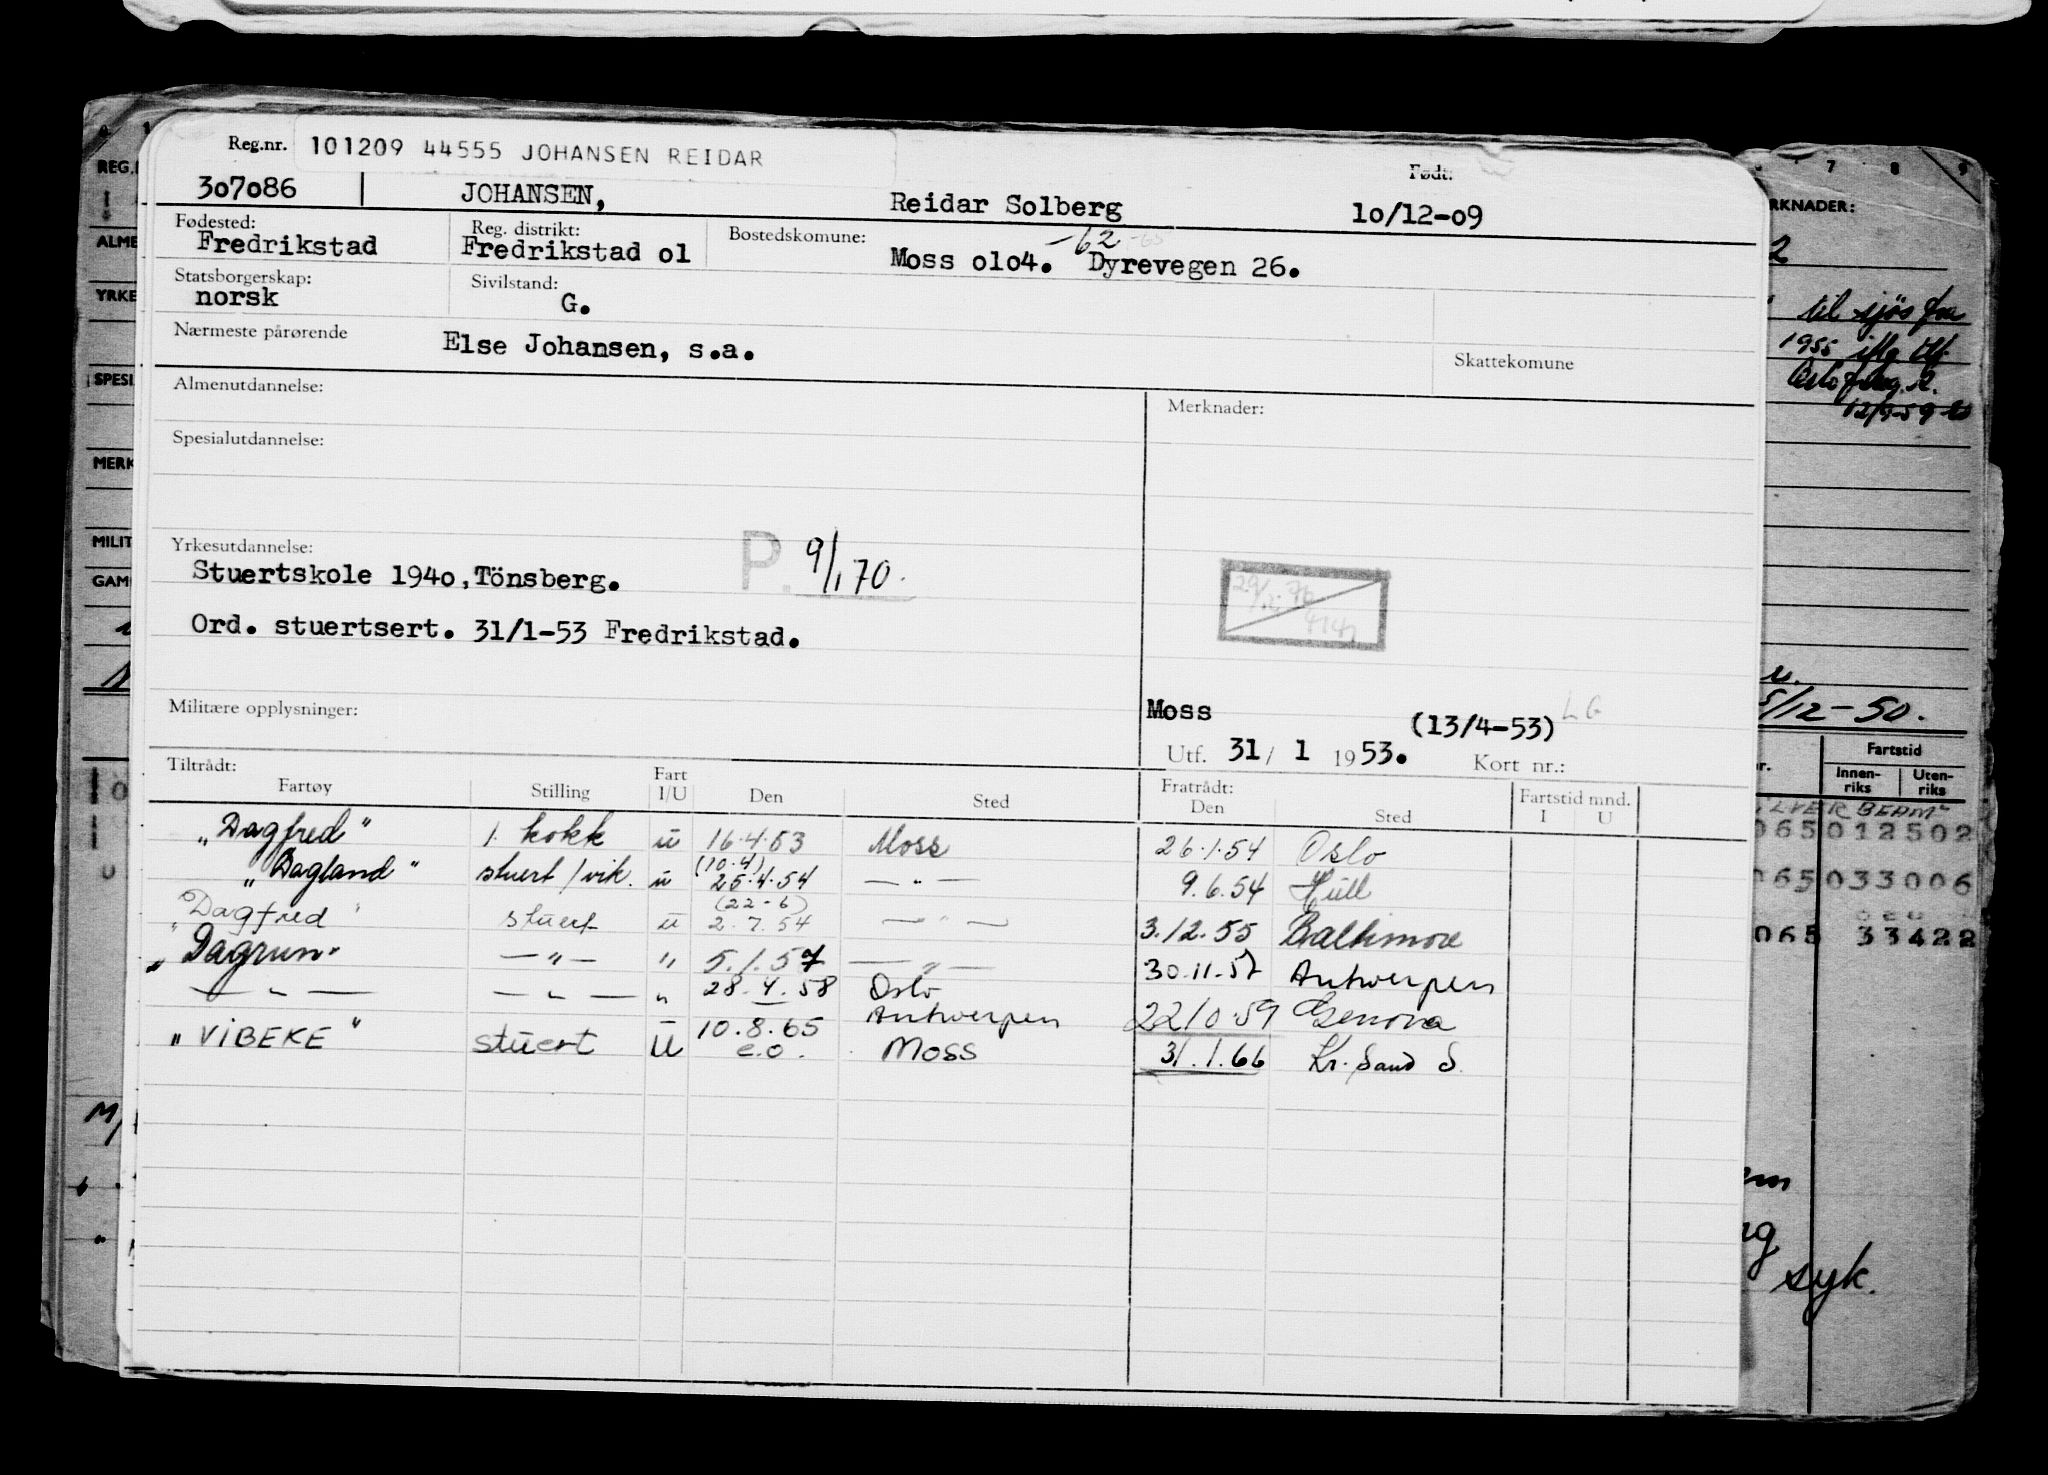 Reg.nr. 101209 44555 JOHANSEN REIDAR
Født:
307086 JOHANSEN, Reidar Solberg 10/12-09
Fødested: Reg. distrikt: Bostedskomune: -62
Fredrikstad Fredrikstad 01 Moss 0104. Dyrevegen 26.
Statsborgerskap: Sivilstand:
norsk G.
Nærmeste pårørende Else Johansen, s.a. Skattekomune
Almenutdannelse: Merknader:
Spesialutdannelse:
Yrkesutdannelse: P. 9/1 70.
Stuertskole 1940, Tönsberg.
Ord. stuertsert. 31/1-53 Fredrikstad.
Militære opplysninger: Moss (13/4-53) LG
Utf. 31/ 1 1953. Kort nr.:
Tiltrådt: Fratrådt:
Fartøy Stilling Fart I/U Den Sted Den Sted Fartstid mnd. I U
"Dagfred" 1. kokk u 16.4.53 Moss 26.1.54 Oslo
"Dagland" stuert/vik. u (10.4) 25.4.54 — " — 9.6.54 Hull
"Dagfred" stuert u (22-6) 2.7.54 — " — 3.12.55 Baltimore
"Dagrun" — " — " 5.1.57 — " — 30.11.57 Antwerpen
— " — — " — " 28.4.58 Oslo
Antwerpen 22/10.59 Genova
"VIBEKE" stuert U 10.8.65 e.o. Moss 31.1.66 Kr.sand S.
REG.
7 8 9
RKNADER:
2
til sjøs fra
1955 iflg
12/5-59
5/12-50.
Fartstid
Innen-riks Uten-riks
065 012502
065 033006
065 33422
ALME
YRKE
SPESI
MERK
MILIT
GAM
M/
syk.